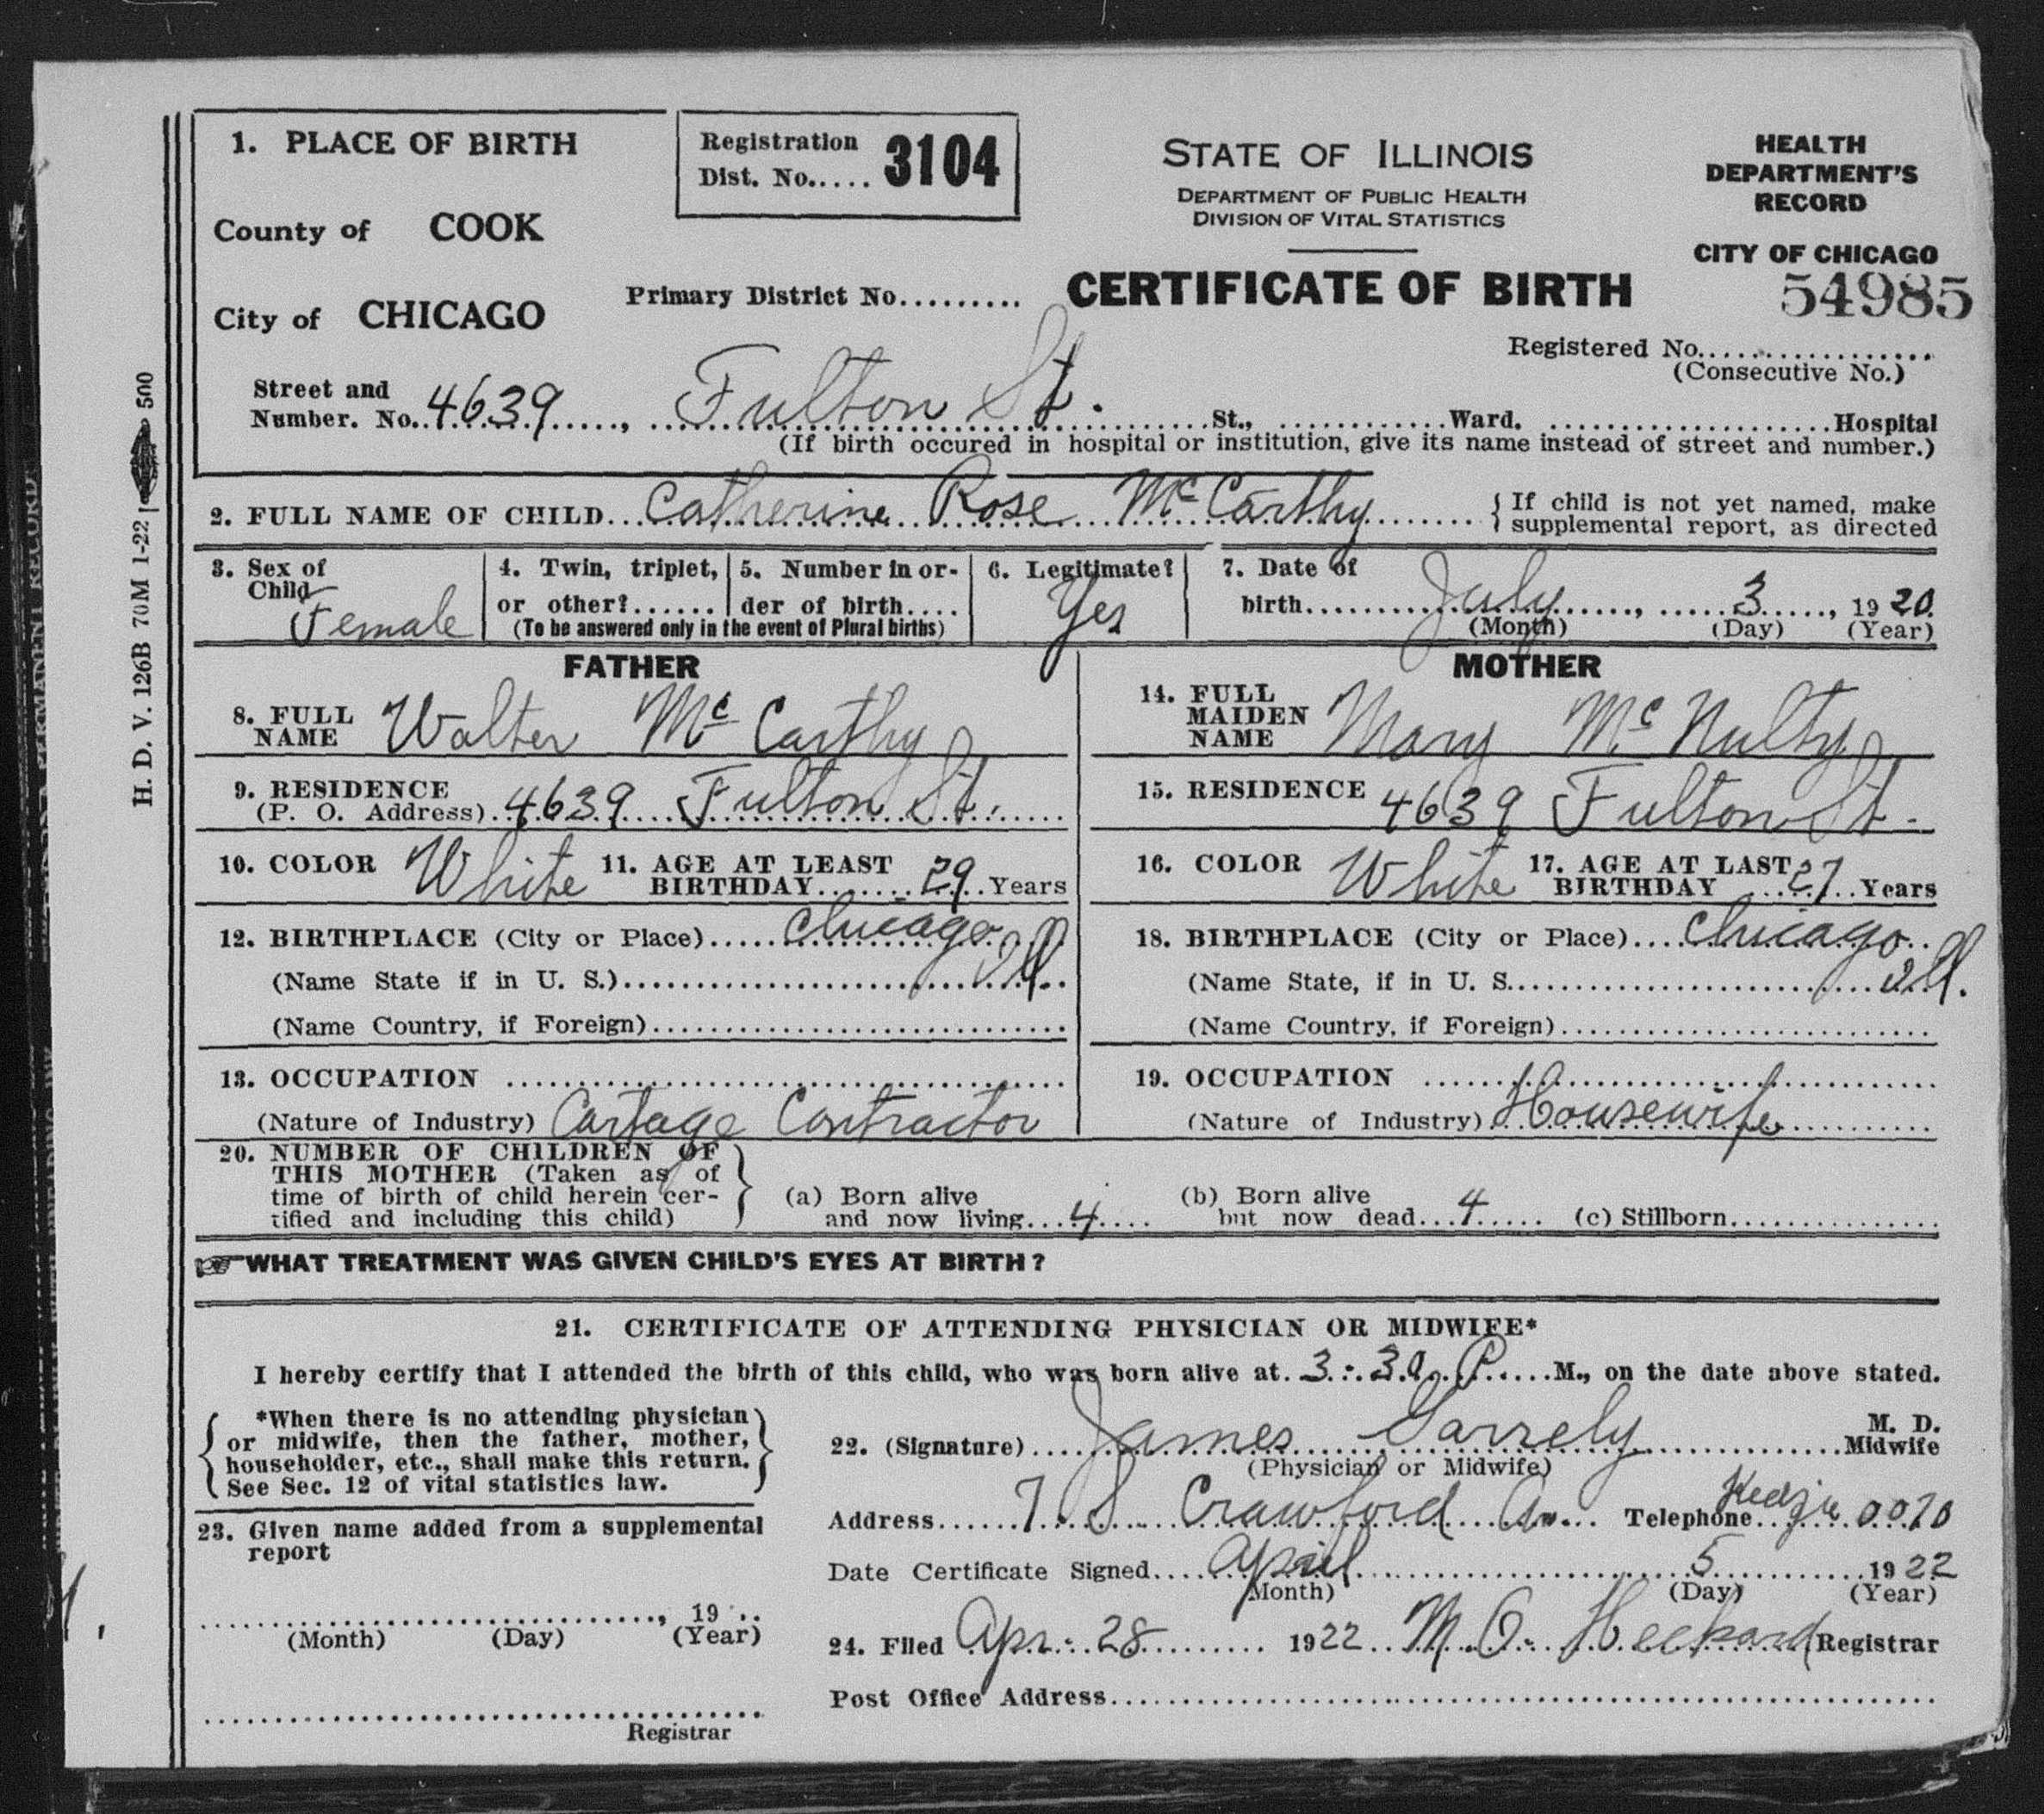 1. PLACE OF BIRTH
Registration
Dist. No..... 3104
STATE OF ILLINOIS
DEPARTMENT OF PUBLIC HEALTH
DIVISION OF VITAL STATISTICS
HEALTH
DEPARTMENT'S
RECORD
CITY OF CHICAGO
54985
County of COOK
City of CHICAGO
Primary District No..........
CERTIFICATE OF BIRTH
Registered No..................
(Consecutive No.)
Street and
Number. No. 4639, Fulton St. St., ............Ward. ....................Hospital
(If birth occured in hospital or institution, give its name instead of street and number.)
2. FULL NAME OF CHILD... Catherine Rose McCarthy
{ If child is not yet named, make
supplemental report, as directed
3. Sex of
Child
Female
4. Twin, triplet,
or other?......
5. Number in or-
der of birth....
(To be answered only in the event of Plural births)
6. Legitimate?
Yes
7. Date of
birth... July, 3, 1920
(Month) (Day) (Year)
FATHER
8. FULL
NAME Walter McCarthy
9. RESIDENCE
(P. O. Address).. 4639 Fulton St.
10. COLOR White 11. AGE AT LEAST
BIRTHDAY... 29 Years
12. BIRTHPLACE (City or Place)..... Chicago
(Name State if in U. S.)... Ill.
(Name Country, if Foreign)..............................
13. OCCUPATION ........................................
(Nature of Industry) Cartage Contractor
MOTHER
14. FULL
MAIDEN
NAME Mary McNulty
15. RESIDENCE 4639 Fulton St.
16. COLOR White 17. AGE AT LAST
BIRTHDAY ... 27 Years
18. BIRTHPLACE (City or Place).... Chicago
(Name State, if in U. S... Ill.
(Name Country, if Foreign)..........................
19. OCCUPATION ....................................
(Nature of Industry) Housewife
20. NUMBER OF CHILDREN OF
THIS MOTHER (Taken as of
time of birth of child herein cer-
tified and including this child)
(a) Born alive
and now living... 4
(b) Born alive
but now dead... 4
(c) Stillborn...............
WHAT TREATMENT WAS GIVEN CHILD'S EYES AT BIRTH?
21. CERTIFICATE OF ATTENDING PHYSICIAN OR MIDWIFE*
I hereby certify that I attended the birth of this child, who was born alive at. 3:30 P. M., on the date above stated.
*When there is no attending physician
or midwife, then the father, mother,
householder, etc., shall make this return.
See Sec. 12 of vital statistics law.
22. (Signature)... James M. D.
Midwife
(Physician or Midwife)
Address... 7 S Crawford Av. Telephone.. Kedzie 0070
Date Certificate Signed.... April 5 1922
(Month) (Day) (Year)
23. Given name added from a supplemental
report
......................................, 19 ..
(Month) (Day) (Year)
Registrar
24. Filed Apr. 28 1922 M. O. Heckard Registrar
Post Office Address..............................
H. D. V. 126B 70M 1-22 500